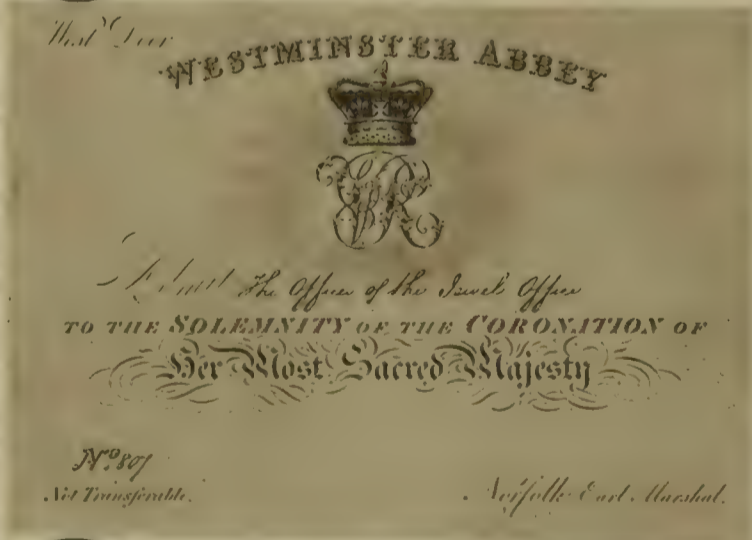 West Door
WESTMINSTER ABBEY
VR
Admit The Officer of the Jewel Office
TO THE SOLEMNITY OF THE CORONATION OF
Her Most Sacred Majesty
No. 807
Not Transferable.
Norfolk Earl Marshal.